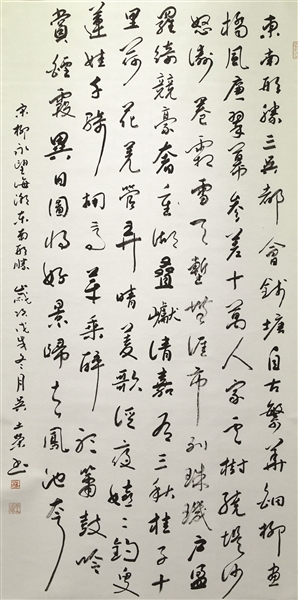 東南形勝三吳都會錢塘自古繁華烟柳畫
橋風廉翠幕參差十萬人家雲樹繞堤沙
怒濤卷霜雪天塹無涯市列珠璣戶盈
羅綺競豪奢重湖疊巘清嘉有三秋桂子十
里荷花羌管弄晴菱歌泛夜嬉〻釣叟
蓮娃千騎擁高牙乘醉聽簫鼓吟
賞煙霞異日圖將好景歸去鳳池夸
宋柳永望海潮東南形勝 歲次戊戌冬月吳士榮書